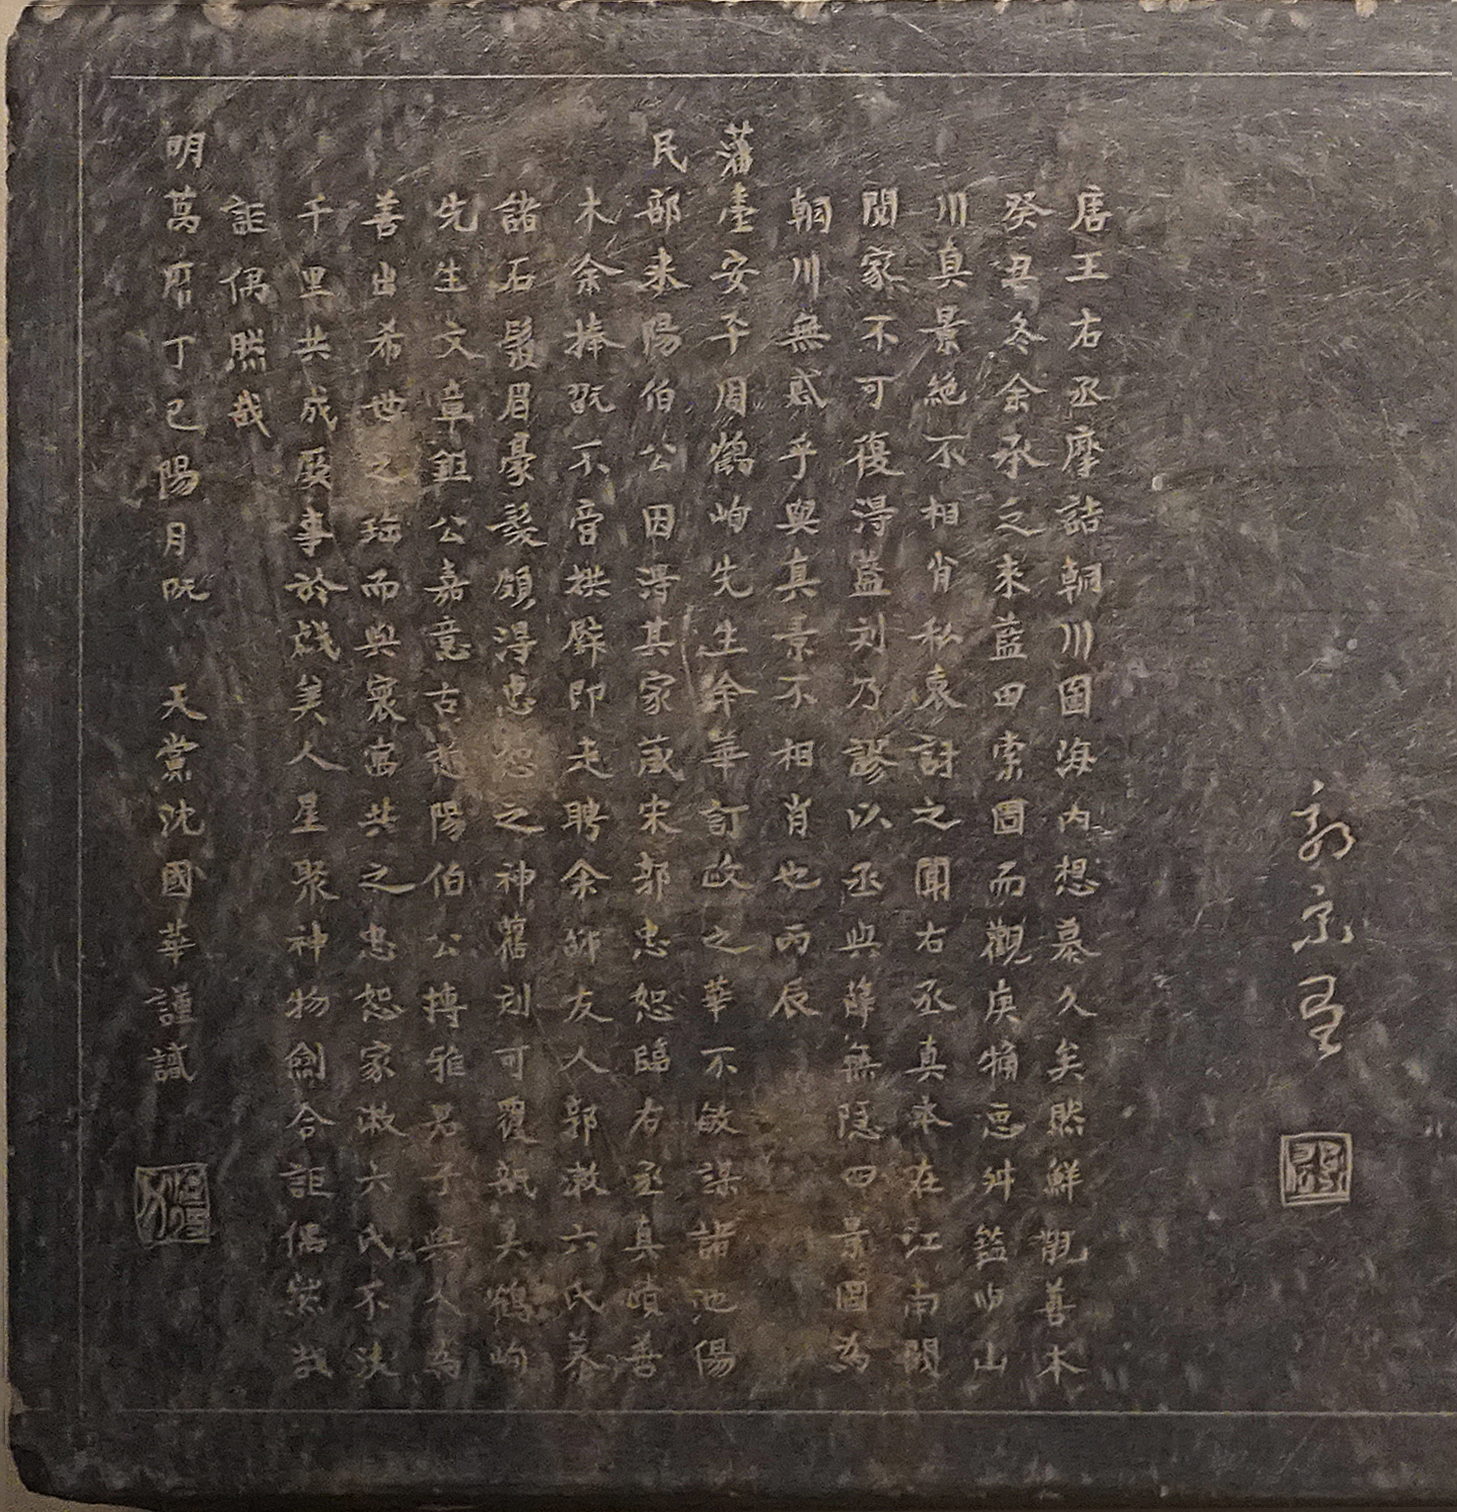 郭忠恕
唐王右丞摩詰輞川圖海内想慕久矣然鮮覩善本
癸丑冬余承乏来藍田索圖而觀庚桶恧舛鎰岣山
川真景絶不相肖私衷訝之聞右丞真本在江南閥
閲家不可復淂葢刘乃謬以丞與薛無隱四景圖為
輞川無貳乎與真景不相肖也丙辰
藩臺安平周鶴峋先生命華訂政之華不敏謀諸池陽
民部来陽伯公因淂其家蔵宋郭忠恕臨右丞真蹟善
木余捧翫不啻拱璧即走聘余鄉友人郭漱六氏摹
諸石鬚眉豪髮頗淂忠恕之神舊刻可覆瓿具鶴峋
先生文章鉅公嘉意古 陽伯公搏雅君子與人為
善出希世之珎而與寰寓共之忠恕家漱六氏不決
千里共成厥事於戲美人星聚神物劍合詎偶然哉
詎偶然哉
明萬厯丁巳陽月既 天黨沈國華謹識